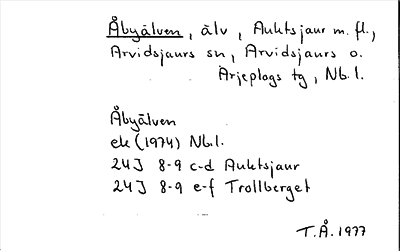 Åbyälven, älv, Auktsjaur m. fl.,
Arvidsjaurs sn, Arvidsjaurs o.
Arjeplogs tg, Nb. l.
Åbyälven
ek (1974) Nb.l.
24J 8-9 c-d Auktsjaur
24J 8-9 e-f Trollberget
T.Å. 1977